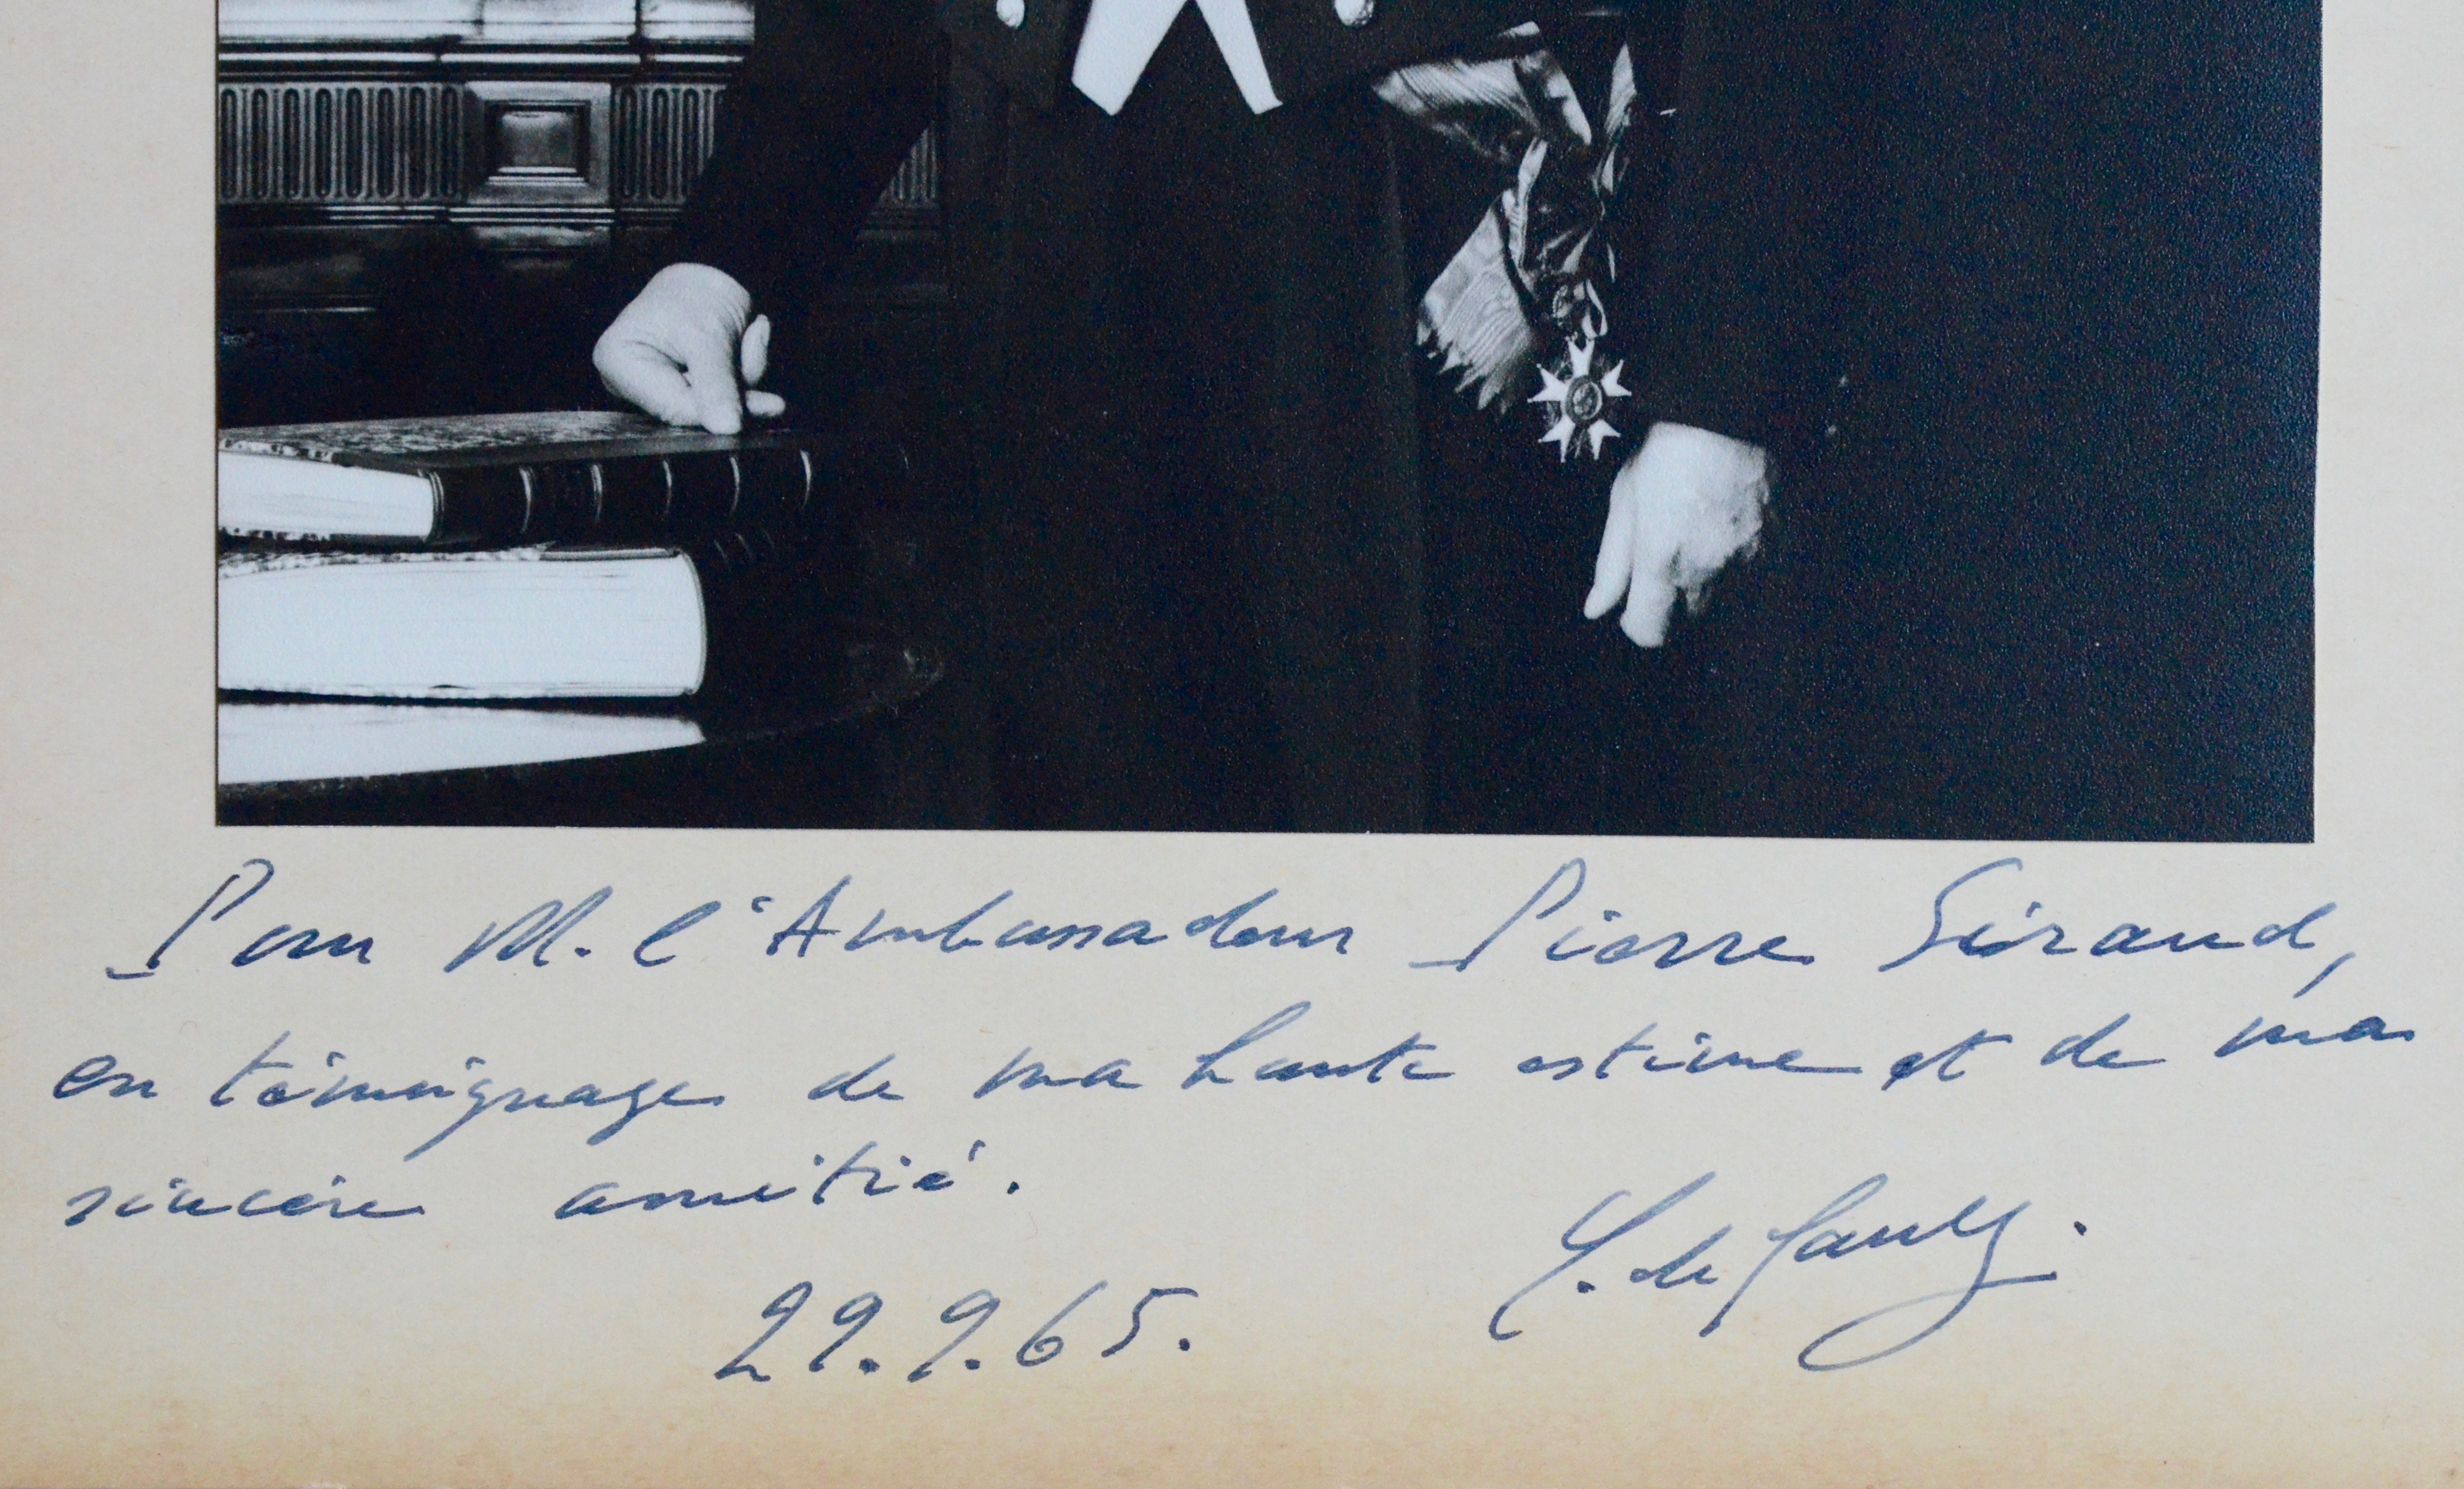 Pour M. l'Ambassadeur Pierre Siraud,
en témoignage de ma haute estime et de ma
sincère amitié.
C. de Gaulle.
29.9.65.